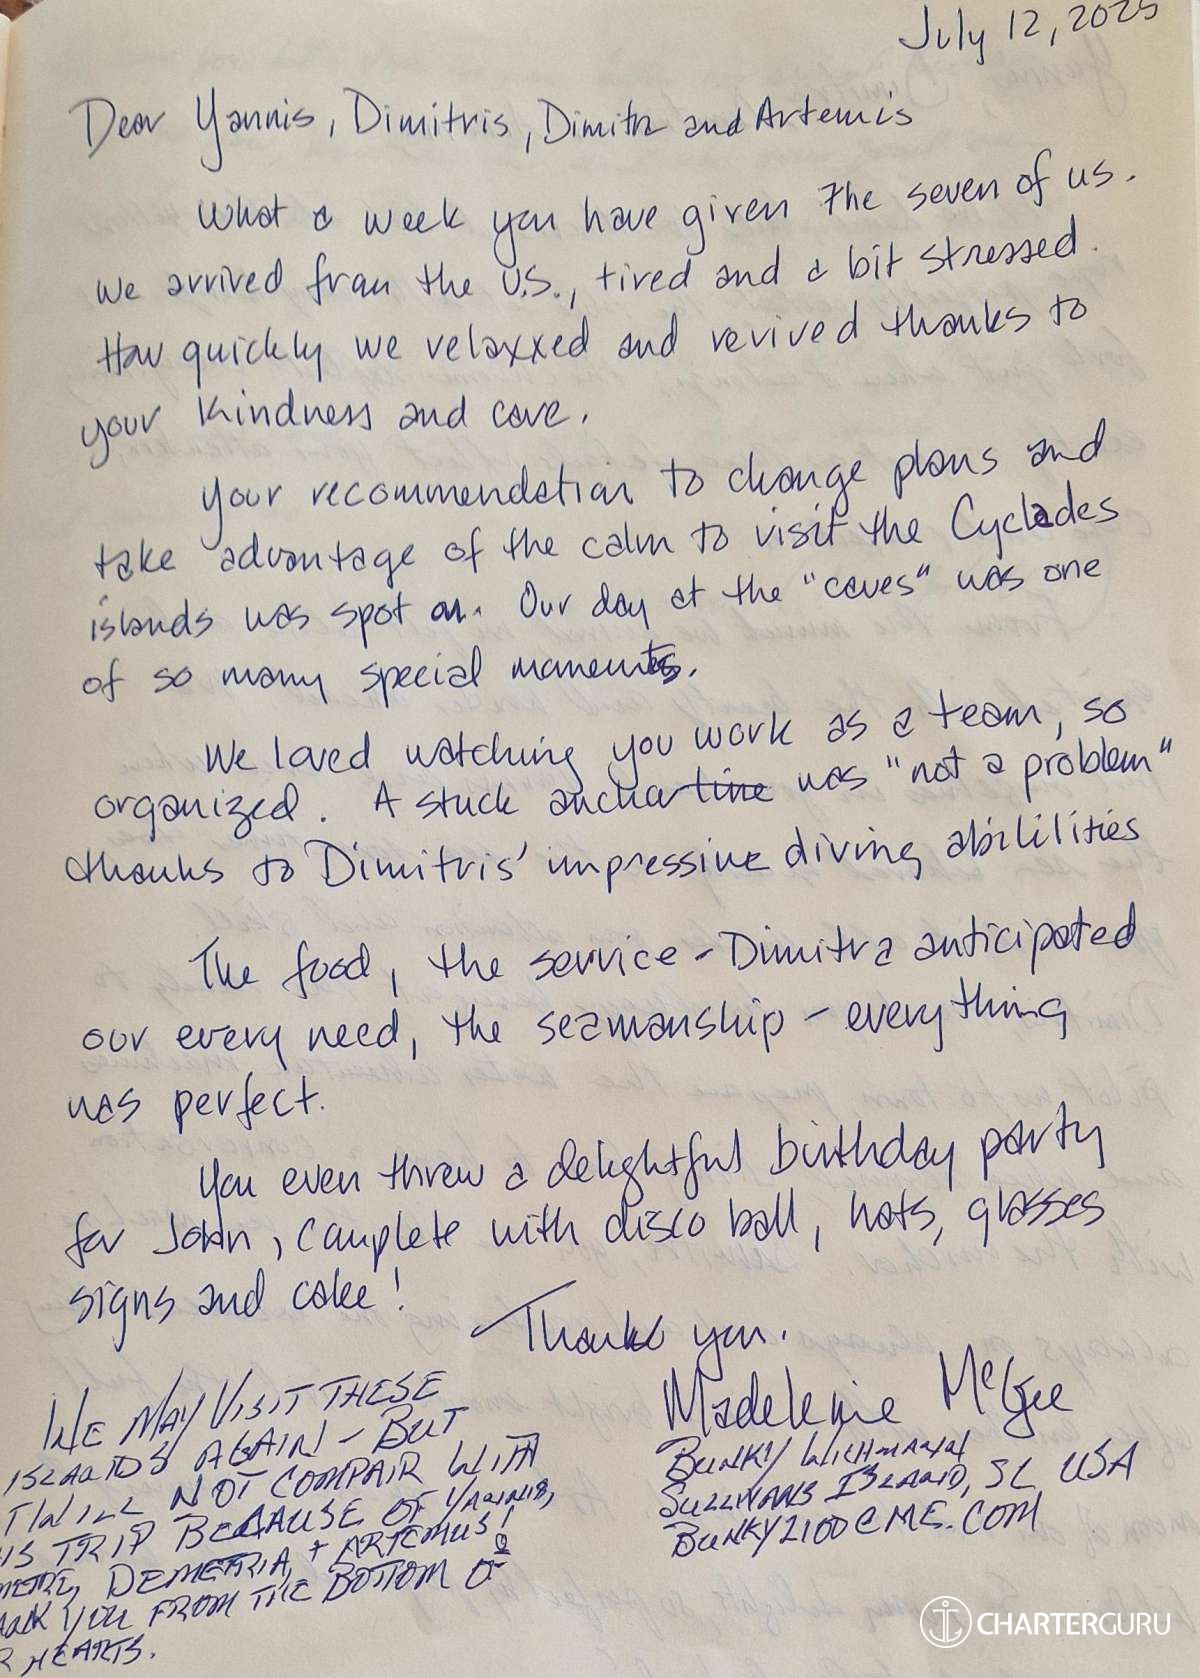 July 12, 2025
Dear Yannis, Dimitris, Dimitra and Artemis
What a week you have given the seven of us.
We arrived from the U.S., tired and a bit stressed.
How quickly we relaxxed and revived thanks to
your kindness and care.
Your recommendation to change plans and
take advantage of the calm to visit the Cyclades
islands was spot on. Our day at the "caves" was one
of so many special moments.
We loved watching you work as a team, so
organized. A stuck anchor line was "not a problem"
thanks to Dimitris' impressive diving abilities
The food, the service - Dimitra anticipated
our every need, the seamanship - everything
was perfect.
You even threw a delightful birthday party
for John, complete with disco ball, hats, glasses
signs and cake!
Thank you.
Madeleine McGee
BUNKY WICHMANN
SULLIVANS ISLAND, SC USA
BUNKY2100@ME.COM
WE MAY VISIT THESE
ISLANDS AGAIN - BUT
T WILL NOT COMPAIR WITH
IS TRIP BECAUSE OF YANNIS,
DEMETRIA, + ARTEMUS!
YOU FROM THE BOTTOM OF
R HEARTS.
CHARTERGURU